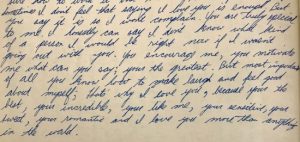 doesn't and saying I love you is enough. But
you say it is so I wont complain. You are truly special
to me, I honestly can say I don't know what kind
of a person I would be right now if I weren't
going out with you. You encourage me, you motivate
me what can I say, your the greatest. But most importantly
of all you know how to make laugh and feel good
about myself, thats why I love you, because your the
best, your incredible, your like me, your sensitive, your
sweet, your romantic and I love you more than anything
in the world.